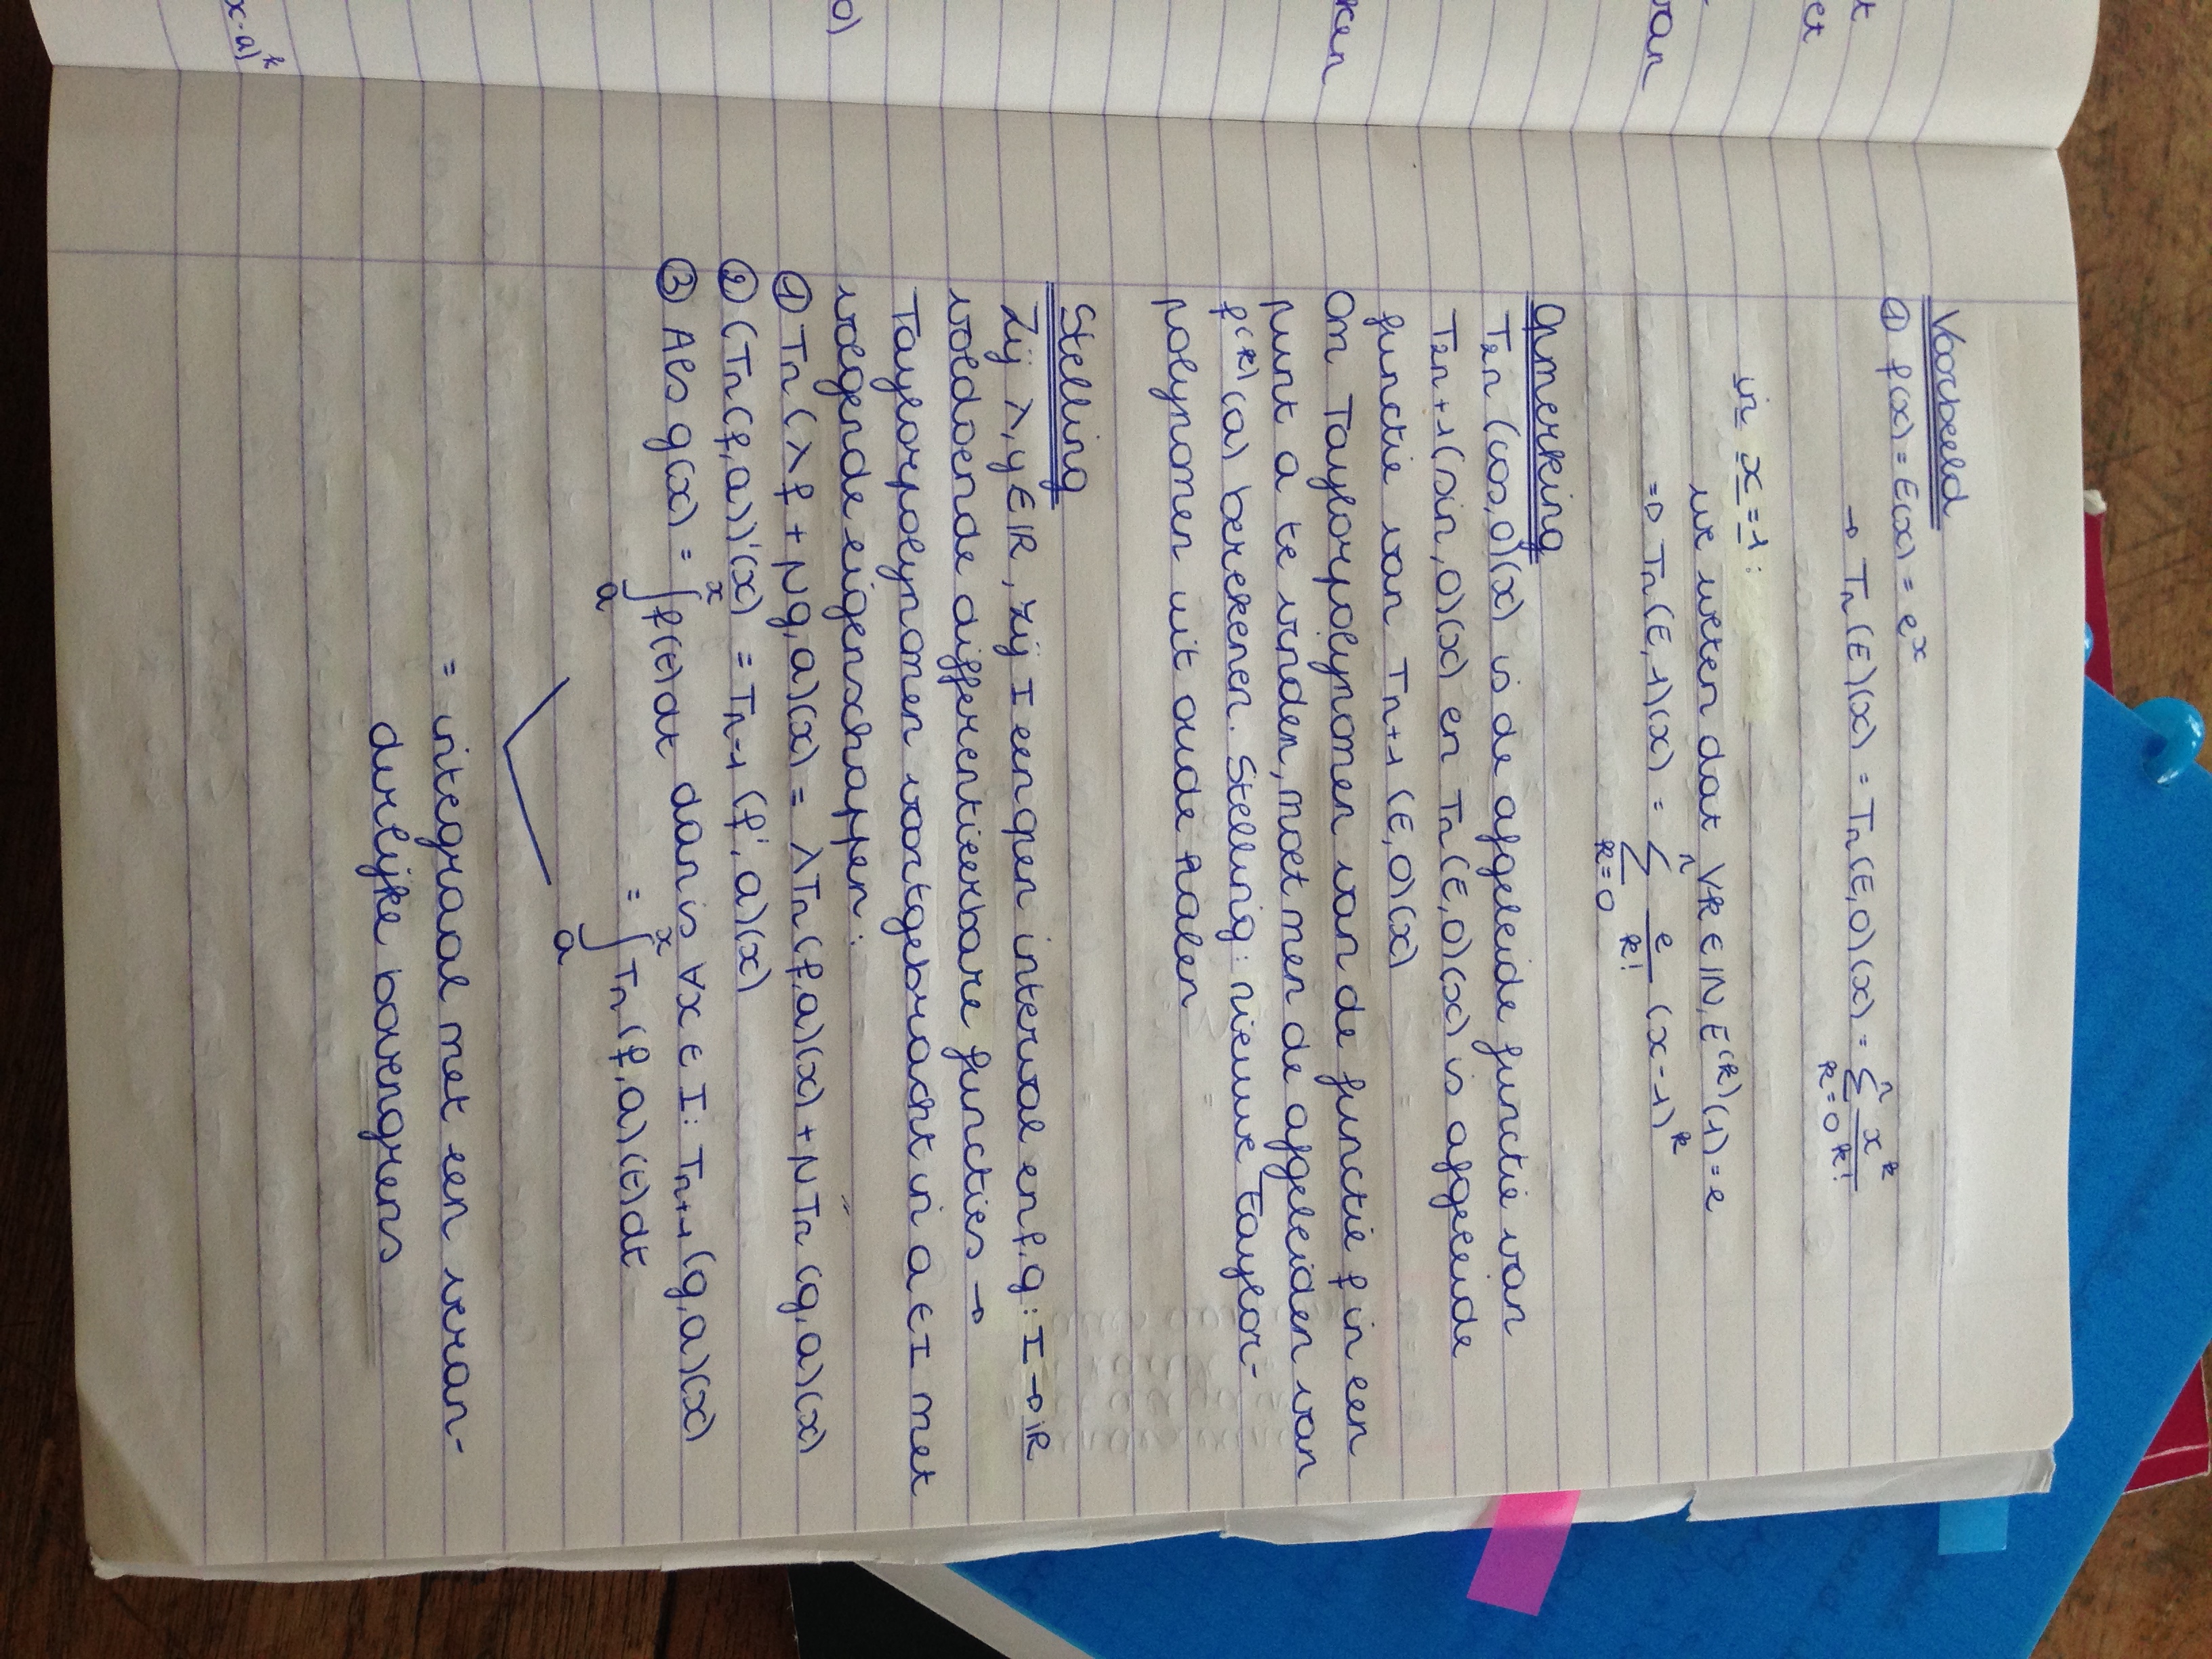 Voorbeeld
① f(x) = E(x) = e^x
→ Tn(E)(x) = Tn(E,0)(x) = Σ_{k=0}^{n} x^k/k!
in x = 1:
we weten dat ∀k ∈ ℕ, E^(k)(1) = e
⇒ Tn(E,1)(x) = Σ_{k=0}^{n} e/k! (x-1)^k
Opmerking
T2n (cos,0)(x) is de afgeleide functie van
T2n+1(sin,0)(x) en Tn(E,0)(x) is afgeleide
functie van Tn+1 (E,0)(x)
Om Taylorpolynomen van de functie f in een
punt a te vinden, moet men de afgeleiden van
f^(k)(a) berekenen. Stelling: nieuwe Taylor-
polynomen uit oude halen
Stelling
Zij λ, y ∈ ℝ, zij I een open interval en f, g : I → ℝ
voldoende differentieerbare functies →
Taylorpolynomen voortgebracht in a ∈ I met
volgende eigenschappen:
① Tn (λf + μg, a)(x) = λTn (f,a)(x) + μTn (g,a)(x)
② (Tn(f,a))'(x) = Tn-1 (f',a)(x)
③ Als g(x) = ∫_a^x f(t)dt dan is ∀x ∈ I: Tn+1 (g,a)(x)
= ∫_a^x Tn (f,a)(t)dt
= integraal met een veran-
derlijke bovengrens
t
et
van
ken
0)
x-a)^k